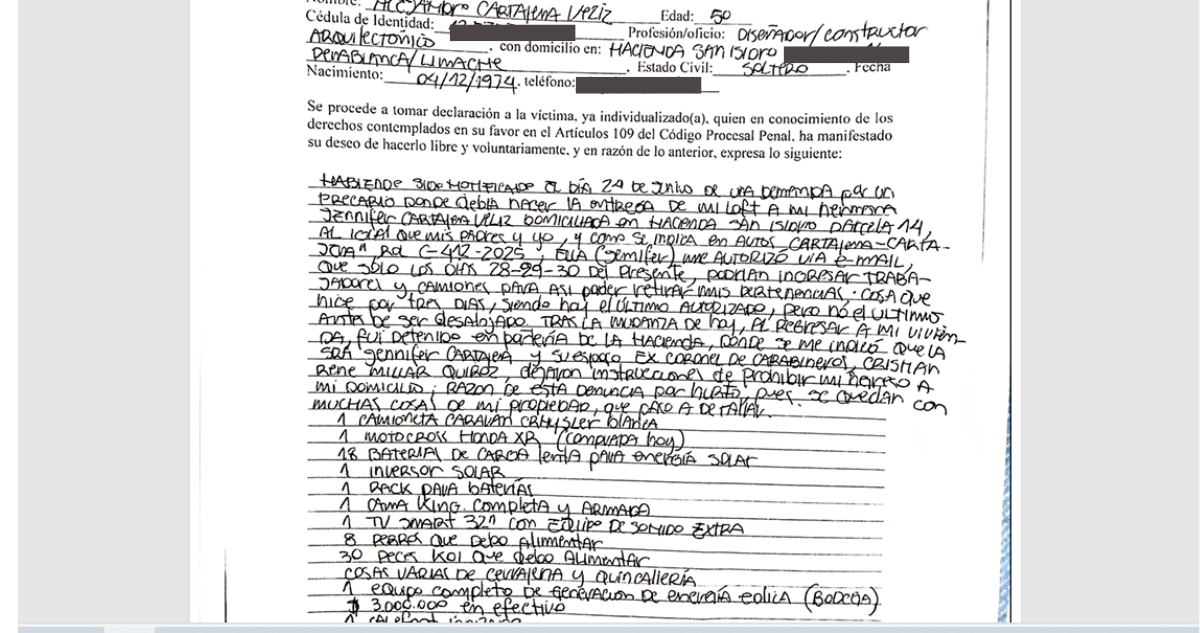 Nombre: ALEJANDRO CARTAJENA VELIZ Edad: 50
Cédula de Identidad: Profesión/oficio: DISEÑADOR/constructor
ARQUITECTÓNICO, con domicilio en: HACIENDA SAN ISIDRO
PEÑABLANCA/LIMACHE, Estado Civil: SOLTERO. Fecha
Nacimiento: 04/12/1974. teléfono:
Se procede a tomar declaración a la víctima, ya individualizado(a), quien en conocimiento de los
derechos contemplados en su favor en el Artículos 109 del Código Procesal Penal, ha manifestado
su deseo de hacerlo libre y voluntariamente, y en razón de lo anterior, expresa lo siguiente:
HABIENDO SIDO NOTIFICADO EL DÍA DE JUNIO DE UNA DEMANDA por un
PRECARIO DONDE debía hacer LA entrega DE mi LOFT A mi hermana
JENNIFER CARTAJENA VELIZ DOMICILIADA en HACIENDA SAN ISIDRO PARCELA 14,
AL IGUAL QUE MIS PADRES y yo, y como se indica en AUTOS CARTAJENA-CARTA-
JENA Rol C-412-2025, ELLA (Jennifer) me AUTORIZÓ VIA e-MAIL,
QUE SOLO LOS DIAS 28-29-30 DEL presente, PODRÍAN INGRESAR TRABA-
JADORES y CAMIONES PARA ASI poder retirar mis PERTENENCIAS. COSA QUE
hice por TRES DIAS, siendo hoy el ÚLTIMO AUTORIZADO, pero no el ULTIMO
ANTES DE ser desalojado. TRAS LA MUDANZA DE hoy, AL REGRESAR A MI VIVIEN-
DA, fui DETENIDO en portería DE LA HACIENDA, DONDE se me indicó QUE LA
SRA Jennifer CARTAJENA y su esposo EX CORONEL DE CARABINEROS, CRISTIAN
RENE MILLAR QUIROZ, dejaron instrucciones de prohibir mi ingreso A
mi DOMICILIO; RAZON DE ESTA DENUNCIA por hurto, pues se QUEDAN con
MUCHAS COSAS DE mi PROPIEDAD, que paso A DETALLAR.
1 CAMIONETA CARAVAN CRHYSLER blanca
1 MOTOCROSS HONDA XR (comprada hoy)
18 BATERIAS DE CARGA lenta para energía SOLAR
1 INVERSOR SOLAR
1 RACK PARA bATERÍAS
1 CAMA KING. completa y ARMADA
1 TV SMART 32" con EQUIPO DE SONIDO EXTRA
8 PERROS QUE DEBO ALIMENTAR
30 peces KOI que debo ALIMENTAR
COSAS VARIAS DE CERRAJERÍA y QUINCALLERÍA
1 equipo completo DE GENERACION DE energía eolica (BODEGA)
$ 3.000.000 en efectivo